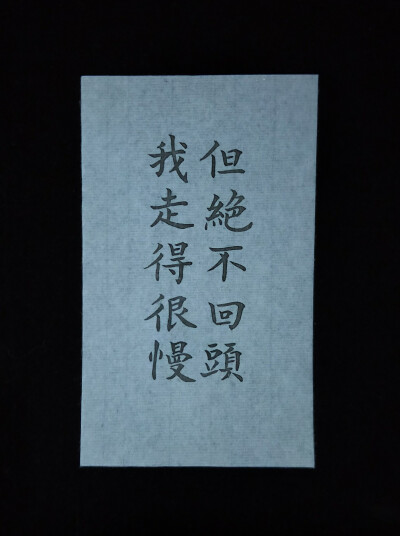 我走得很慢
但絶不回頭